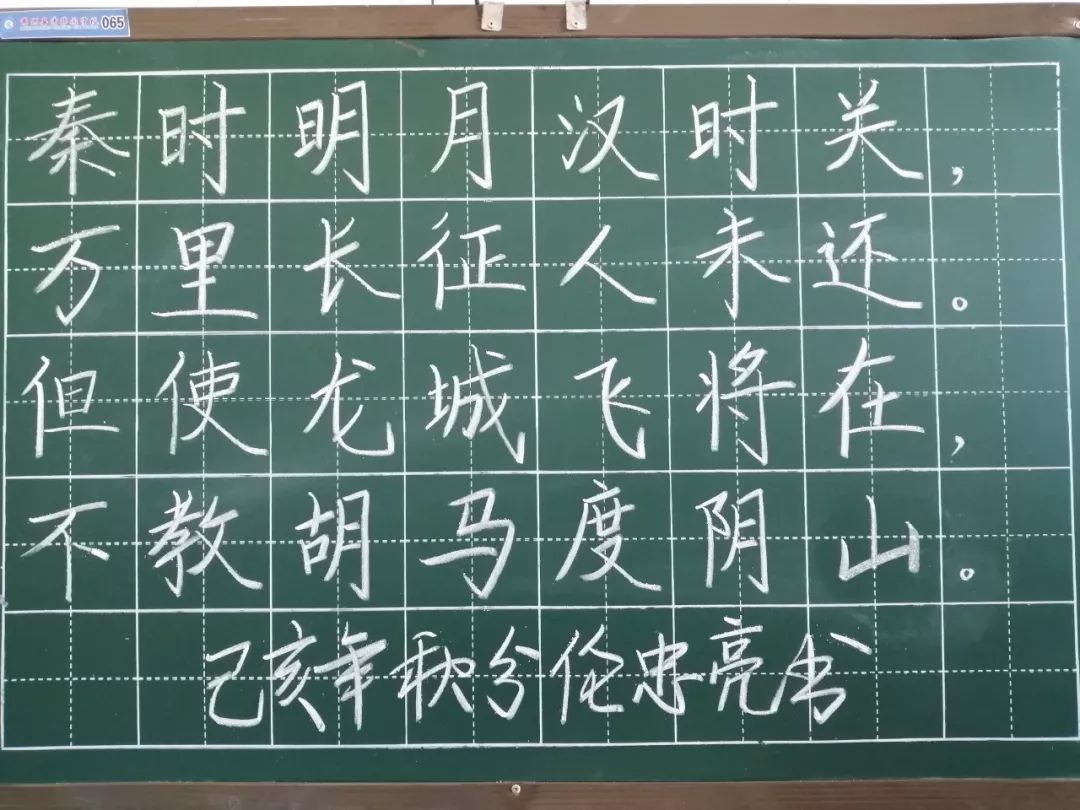 065
秦时明月汉时关，
万里长征人未还。
但使龙城飞将在，
不教胡马度阴山。
己亥年秋分伦忠亮书